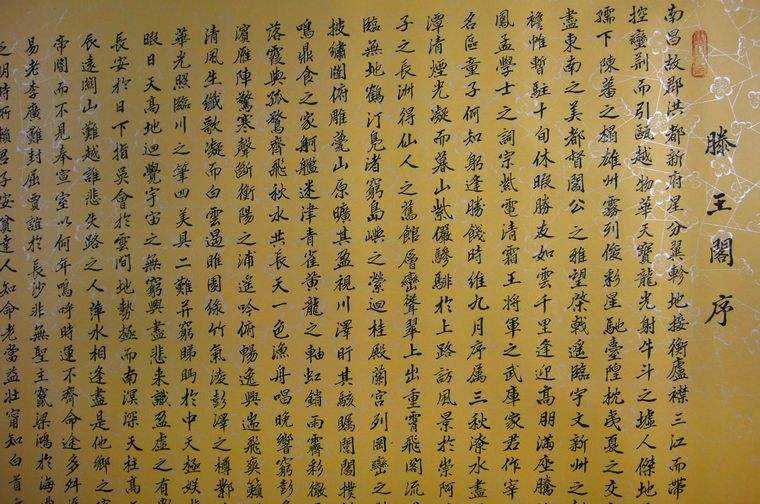 滕王閣序
南昌故郡洪都新府星分翼軫地接衡廬襟三江而帶
控蠻荊而引甌越物華天寶龍光射牛斗之墟人傑地
孺下陳蕃之榻雄州霧列俊彩星馳臺隍枕夷夏之交
盡東南之美都督閻公之雅望棨戟遙臨宇文新州之
襜帷暫駐十旬休暇勝友如雲千里逢迎高朋滿座騰
鳳孟學士之詞宗紫電清霜王將軍之武庫家君作宰
名區童子何知躬逢勝餞時維九月序屬三秋潦水盡
潭清煙光凝而暮山紫儼驂騑於上路訪風景於崇阿
子之長洲得仙人之舊館層巒聳翠上出重霄飛閣流
臨無地鶴汀鳧渚窮島嶼之縈迴桂殿蘭宮列岡巒之
披繡闥俯雕甍山原曠其盈視川澤盱其駭矚閭閻撲
鳴鼎食之家舸艦迷津青雀黃龍之軸虹銷雨霽彩徹
落霞與孤鶩齊飛秋水共長天一色漁舟唱晚響窮彭
濱雁陣驚寒聲斷衡陽之浦遙吟俯暢逸興遄飛爽籟
清風生纖歌凝而白雲遏睢園綠竹氣凌彭澤之樽鄴
華光照臨川之筆四美具二難并窮睇眄於中天極娛
暇日天高地迥覺宇宙之無窮興盡悲來識盈虛之有
長安於日下指吳會於雲間地勢極而南溟深天柱高
辰遠關山難越誰悲失路之人萍水相逢盡是他鄉之
帝閽而不見奉宣室以何年嗚呼時運不齊命途多舛
易老李廣難封屈賈誼於長沙非無聖主竄梁鴻於海
之明時所賴君子安貧達人知命老當益壯寧知白首